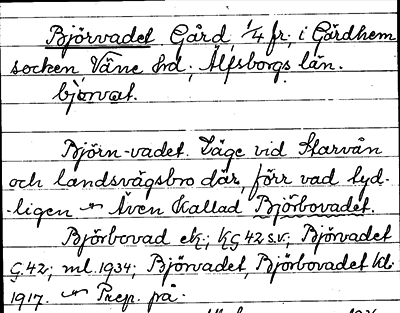 Björvadet Gård 1/4 fr; i Gärdhem
socken Väne hd; Älfsborgs län.
bjørvat.
Björn-vadet. Läge vid Starvån
och landsvägsbro där, förr vad tyd-
-ligen Även kallad Björbovadet.
Björbovad ek; KG 42 s.v.; Björvadet
G.42; ml. 1934; Björvadet, Björbovadet kb.
1917. Prep. på.